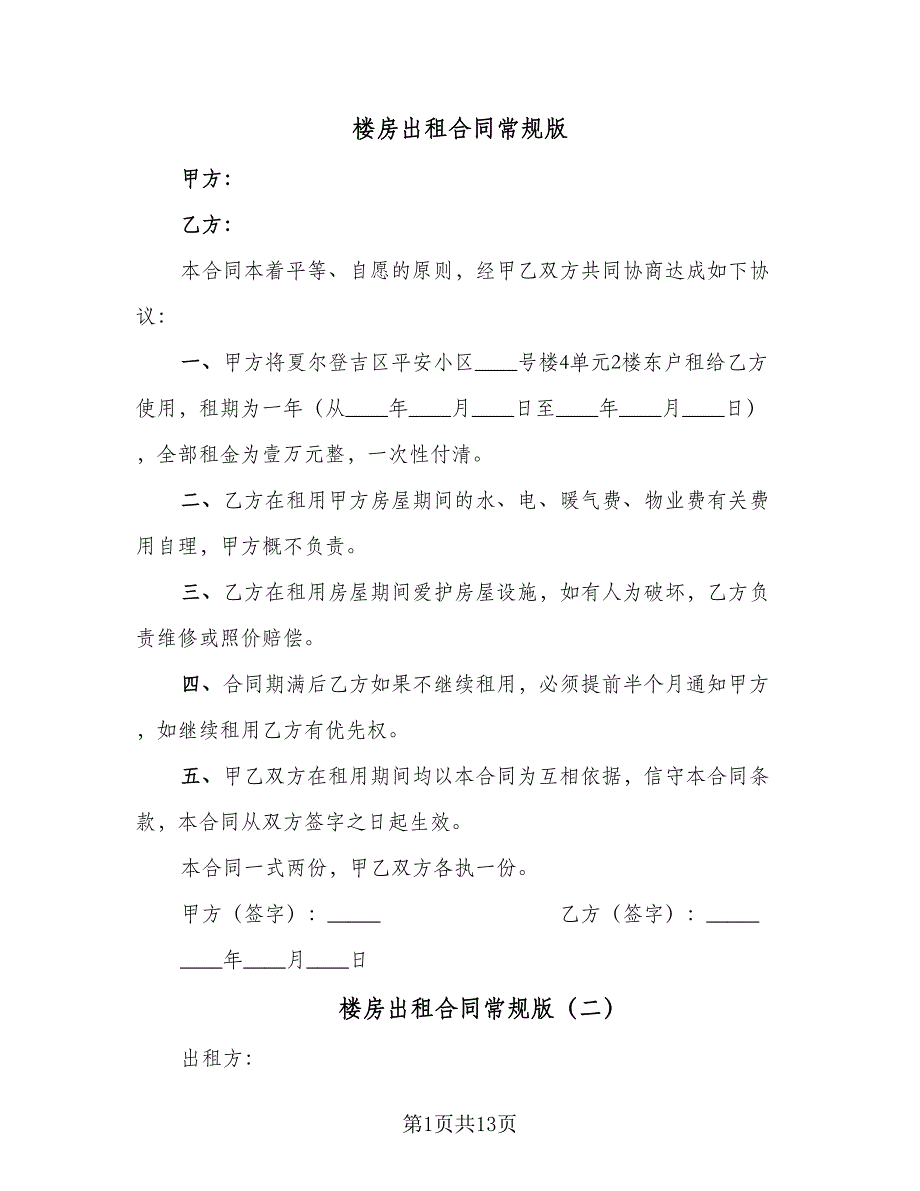 楼房出租合同常规版
甲方：
乙方：
本合同本着平等、自愿的原则，经甲乙双方共同协商达成如下协
议：
一、甲方将夏尔登吉区平安小区____号楼4单元2楼东户租给乙方
使用，租期为一年（从____年____月____日至____年____月____日）
，全部租金为壹万元整，一次性付清。
二、乙方在租用甲方房屋期间的水、电、暖气费、物业费有关费
用自理，甲方概不负责。
三、乙方在租用房屋期间爱护房屋设施，如有人为破坏，乙方负
责维修或照价赔偿。
四、合同期满后乙方如果不继续租用，必须提前半个月通知甲方
，如继续租用乙方有优先权。
五、甲乙双方在租用期间均以本合同为互相依据，信守本合同条
款，本合同从双方签字之日起生效。
本合同一式两份，甲乙双方各执一份。
甲方（签字）：_____ 乙方（签字）：_____
____年____月____日
楼房出租合同常规版（二）
出租方：
第1页共13页